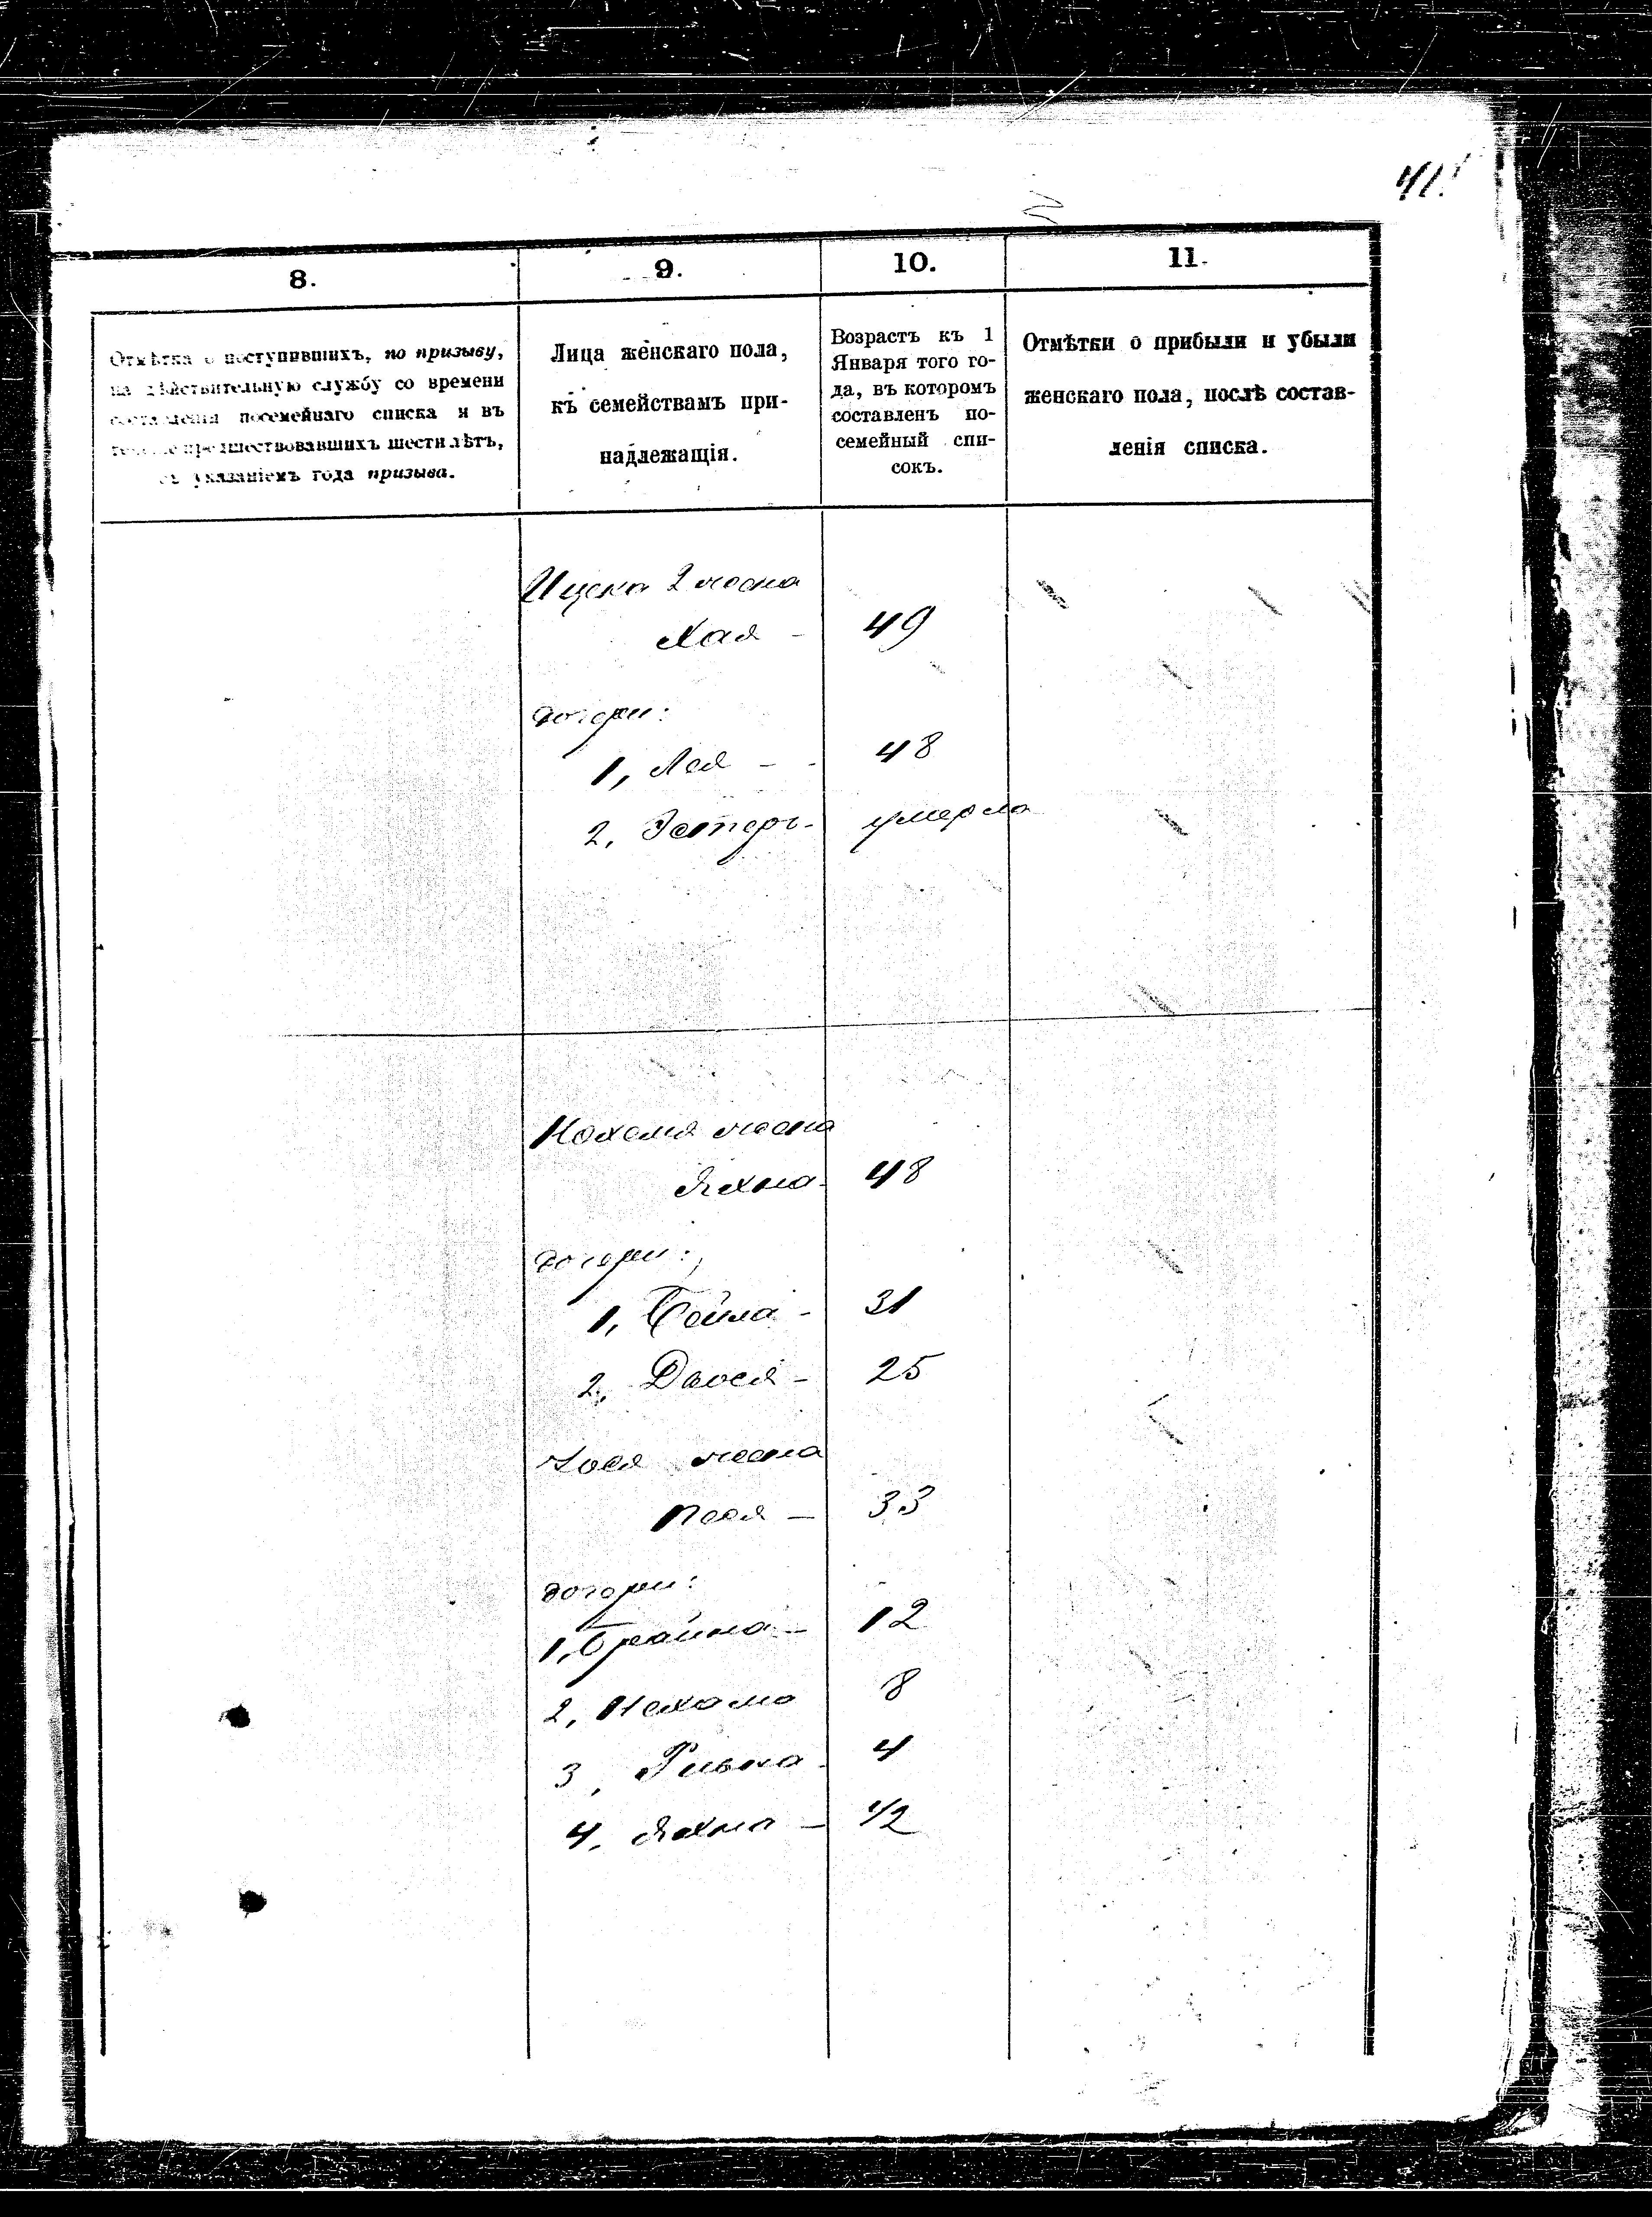 41
8.
9.
10.
11.
Отмѣтка о поступившихъ, по призыву,
на дѣйствительную службу со времени
составленія посемейнаго списка и въ
предшествовавшихъ шести лѣтъ,
съ указаніемъ года призыва.
Лица женскаго пола,
къ семействамъ при-
надлежащія.
Возрастъ къ 1
Января того го-
да, въ которомъ
составленъ по-
семейный спи-
сокъ.
Отмѣтки о прибыли и убыли
женскаго пола, послѣ состав-
ленія списка.
Ицска 2 жена
Хая - 49
дочери:
1, Лея - - 48
2, Эстеръ - умерла
жена
Яхна - 48
дочери:
1, Бейла - 31
2, - 25
жена
Песя - 33
дочери:
1, Брайна - 12
2, Нехама 8
3, Ривка - 4
4, Яхна - 1/2